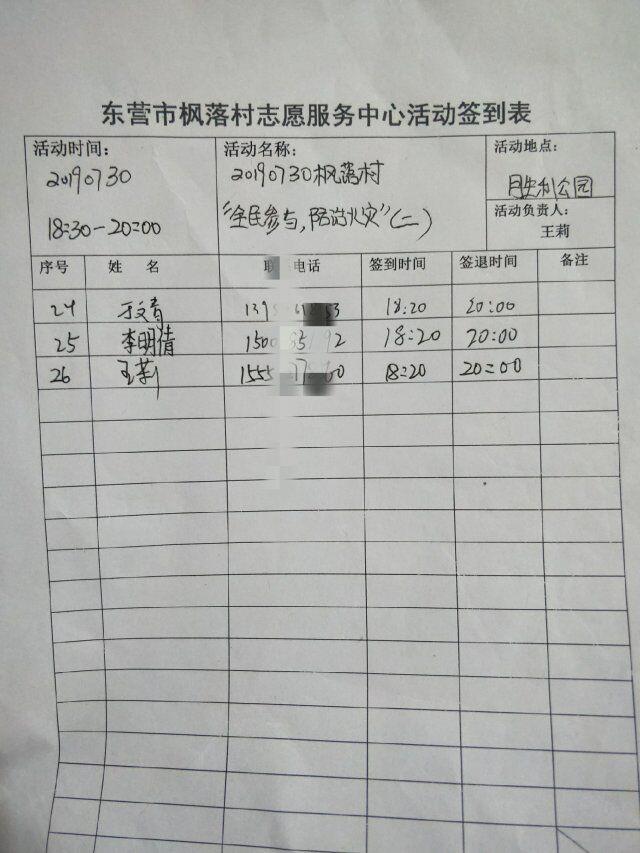 东营市枫落村志愿服务中心活动签到表
活动时间: 活动名称: 活动地点:
20190730 20190730枫落村 胜利公园
18:30-20:00 "全民参与,防治火灾"(二) 活动负责人:
王莉
序号 姓名 电话 签到时间 签退时间 备注
24 于文青 18:20 20:00
25 李明倩 18:20 20:00
26 王莉 18:20 20:00